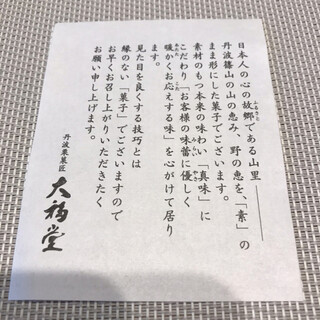 日本人の心の故郷である山里――
丹波篠山の山の恵み、野の恵を、「素」の
まま形にした菓子でございます。
素材のもつ本来の味わい「真味」に
こだわり「お客様の味蕾に優しく
暖かくお応えする味」を心がけて居り
ます。
見た目を良くする技巧とは
縁のない「菓子」でございますので
お早くお召し上がりいただきたく
お願い申し上げます。
丹波果菓匠
大福堂